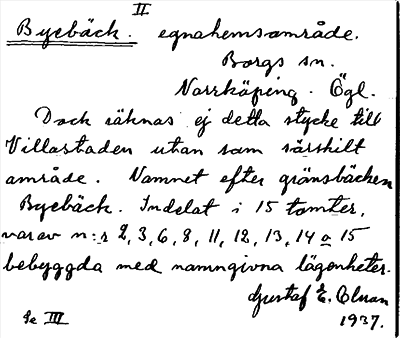 II
Byebäck. egnahemsområde.
Borgs sn.
Norrköping. Ögl.
Dock räknas ej detta stycke till
Villastaden utan som särskilt
område. Namnet efter gränsbäcken
Byebäck. Indelat i 15 tomter,
varav n:r 2, 3, 6, 8, 11, 12, 13, 14 o 15
bebyggda med namngivna lägenheter.
Gustaf E. Olman
Se III 1937.